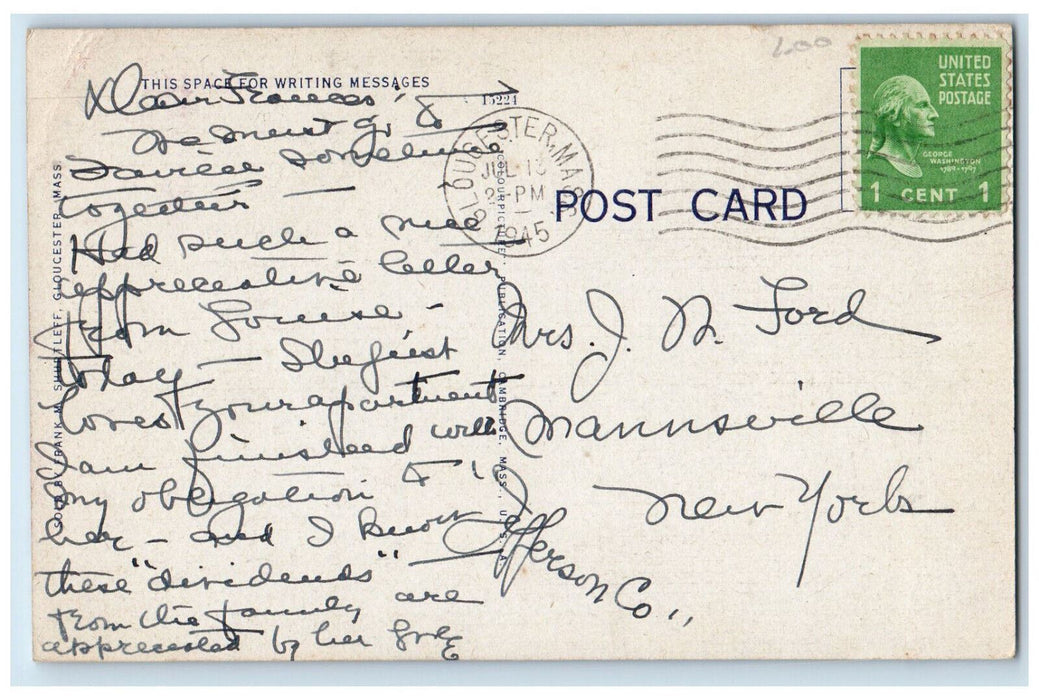 200
THIS SPACE FOR WRITING MESSAGES
15224
Dear Frances:
We must go to
together
Had such a nice
appreciative letter
from Louise -
today - She just
loves your apartment
I am finished with
my obligation to
her - and I know
these "dividends" are
from the family
appreciated by her
SOLD BY FRANK M. SHURTLEFF, GLOUCESTER, MASS.
COLOURPICTURE PUBLICATION, CAMBRIDGE, MASS., U.S.A.
GLOUCESTER, MASS.
JUL 13
2-PM
1945
POST CARD
UNITED
STATES
POSTAGE
GEORGE
WASHINGTON
1789-1797
1 CENT 1
Mrs. J. N. Ford
Mannsville
New York
Jefferson Co.,